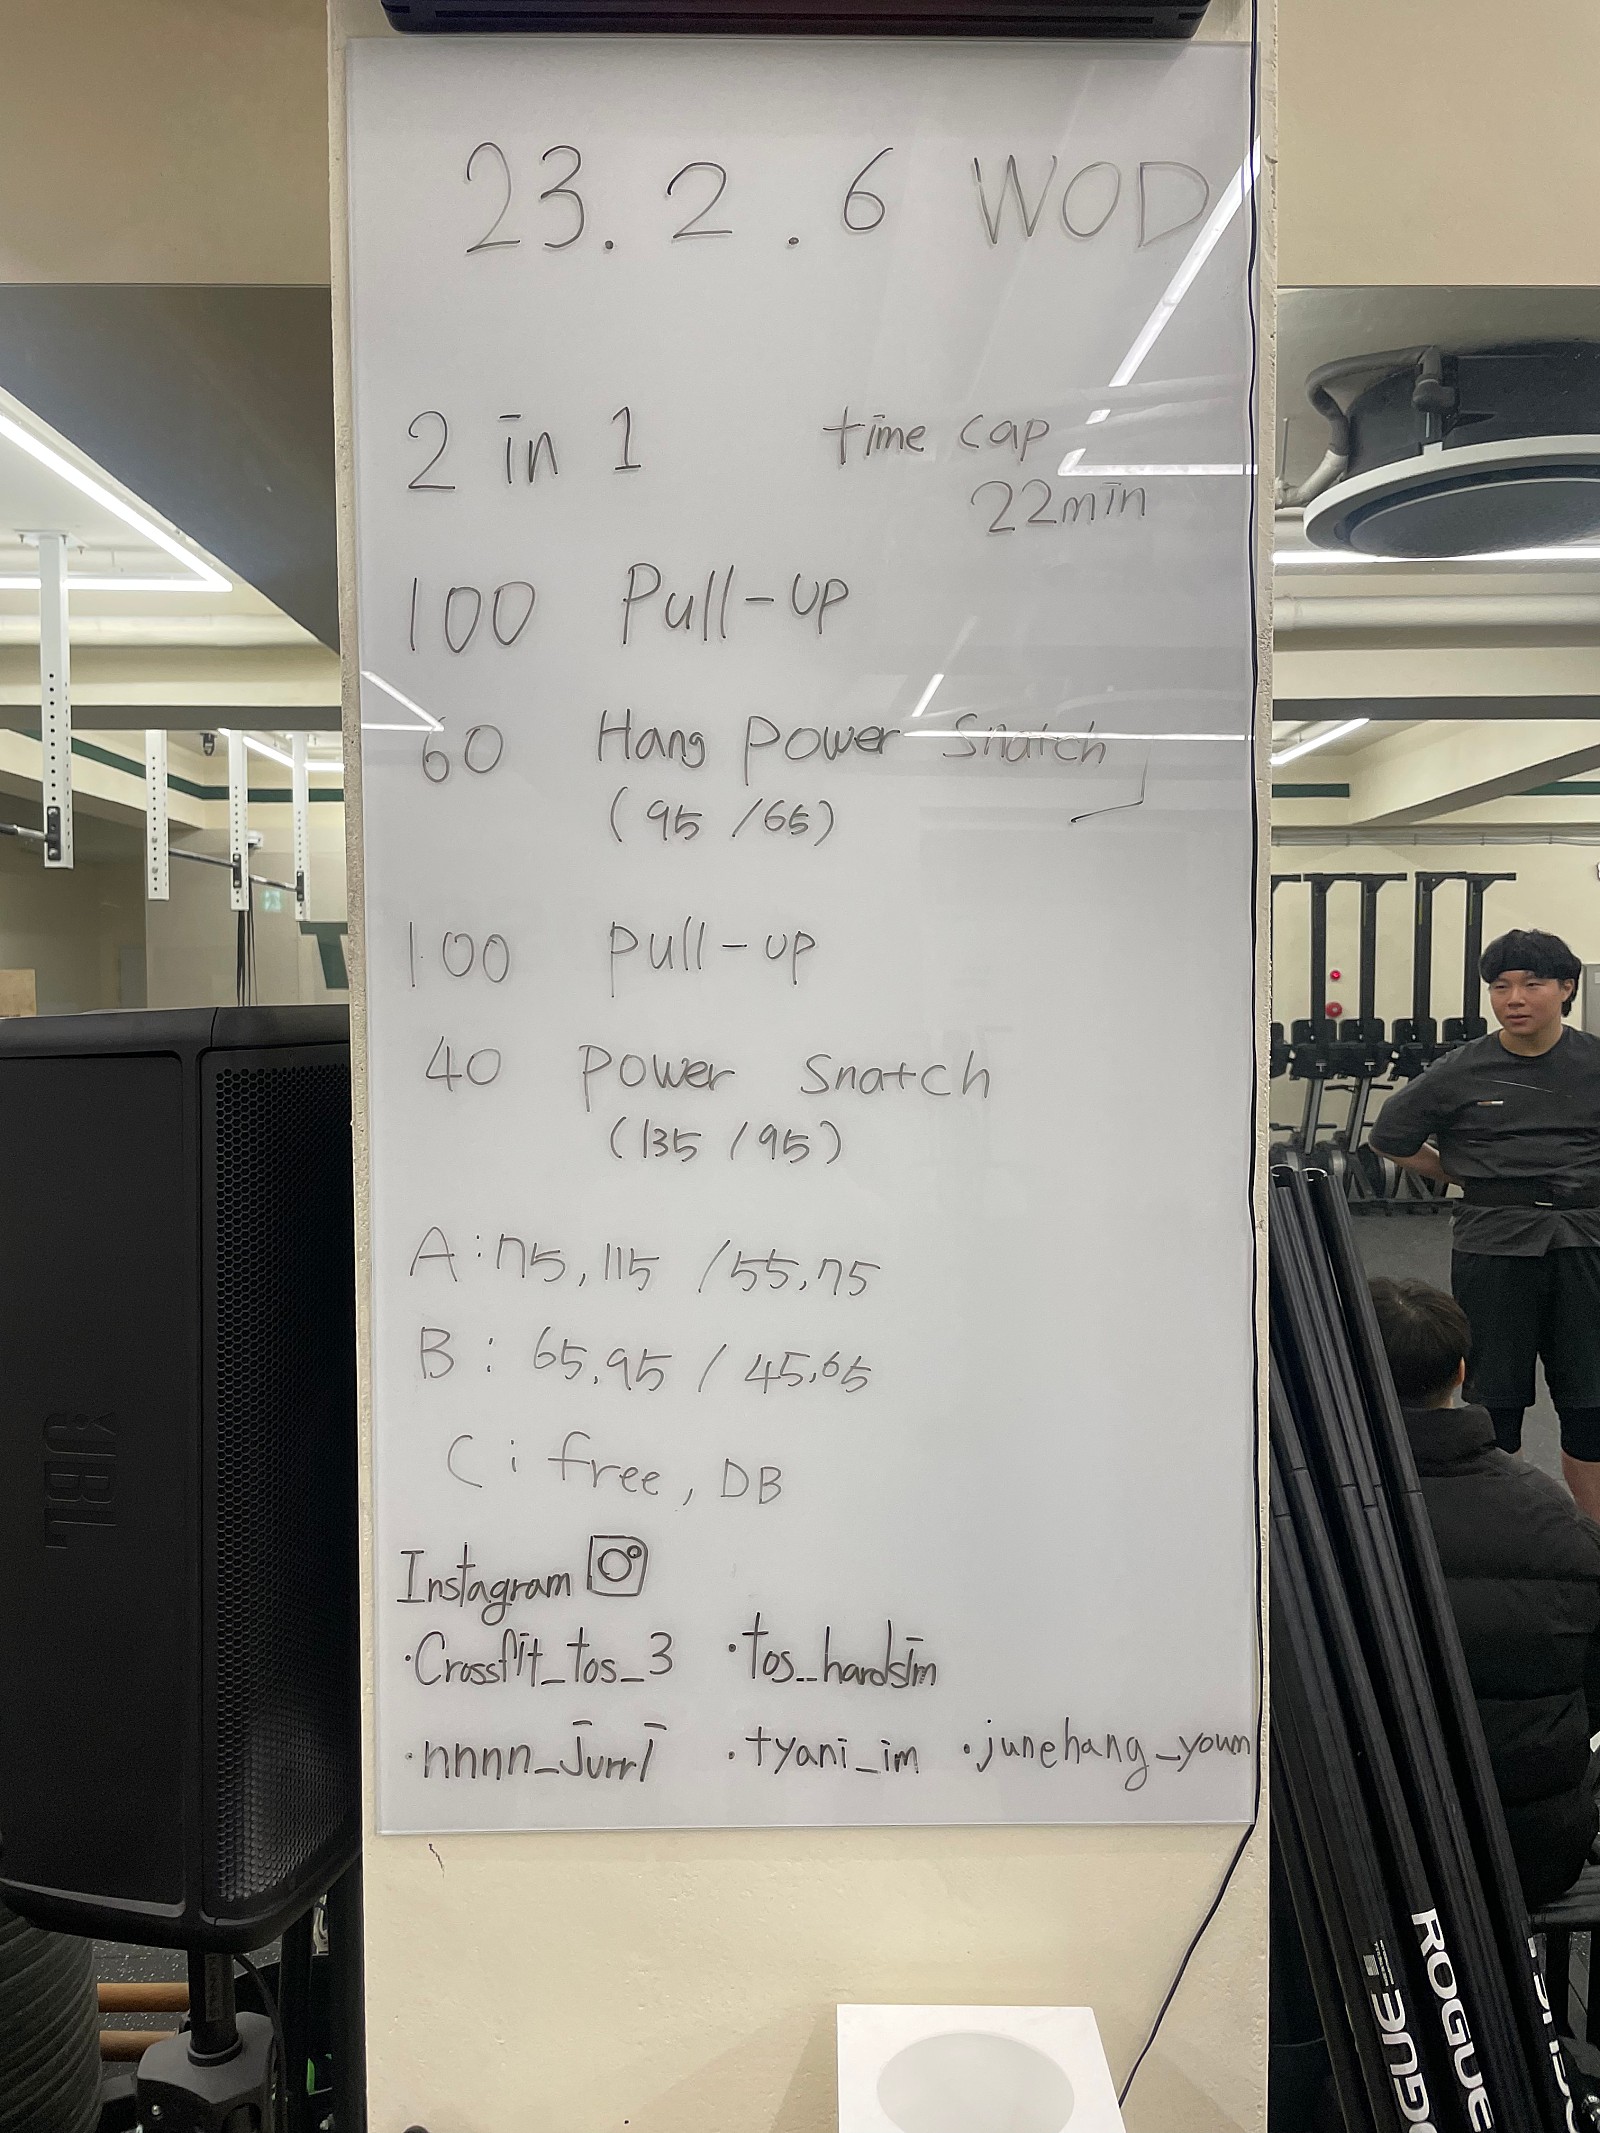 23. 2 . 6 WOD
2 in 1 time cap
22min
100 Pull-up
60 Hang power snatch
(95 /65)
100 pull-up
40 power snatch
(135 / 95)
A : 75, 115 / 55, 75
B : 65, 95 / 45, 65
C : free, DB
Instagram
·Crossfit_tos_3 ·tos_hardsim
·nnnn_jurrl ·tyani_im ·junehang_youn
JBL
ROGUE
ROGUE